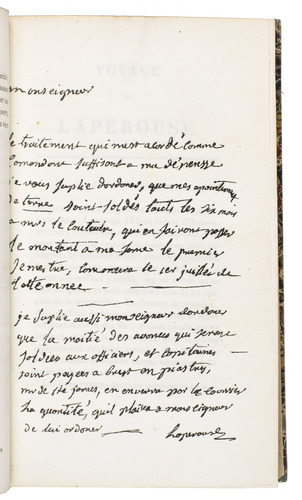 VOYAGE
LAPÉROUSE
monseigneur
le traitement qui m'est acordé comme
comandant suffisant a ma dépense
je vous suplie d'ordoner, que mes apointements
de terre soint soldés touts les six mois
a mrs le couteulx, qui en fairont passer
le montant a ma fame le premier
semestre, comencera le 1er juillet de
cette année
je suplie aussi monseigneur d'ordoner
que la moitié des avances qui seront
soldées aux officiers, et capitaines
soint payées a brest en piastres,
mr de enverra par le courrier
la quantité, qu'il plaira a monseigneur
de lui ordoner laperouse